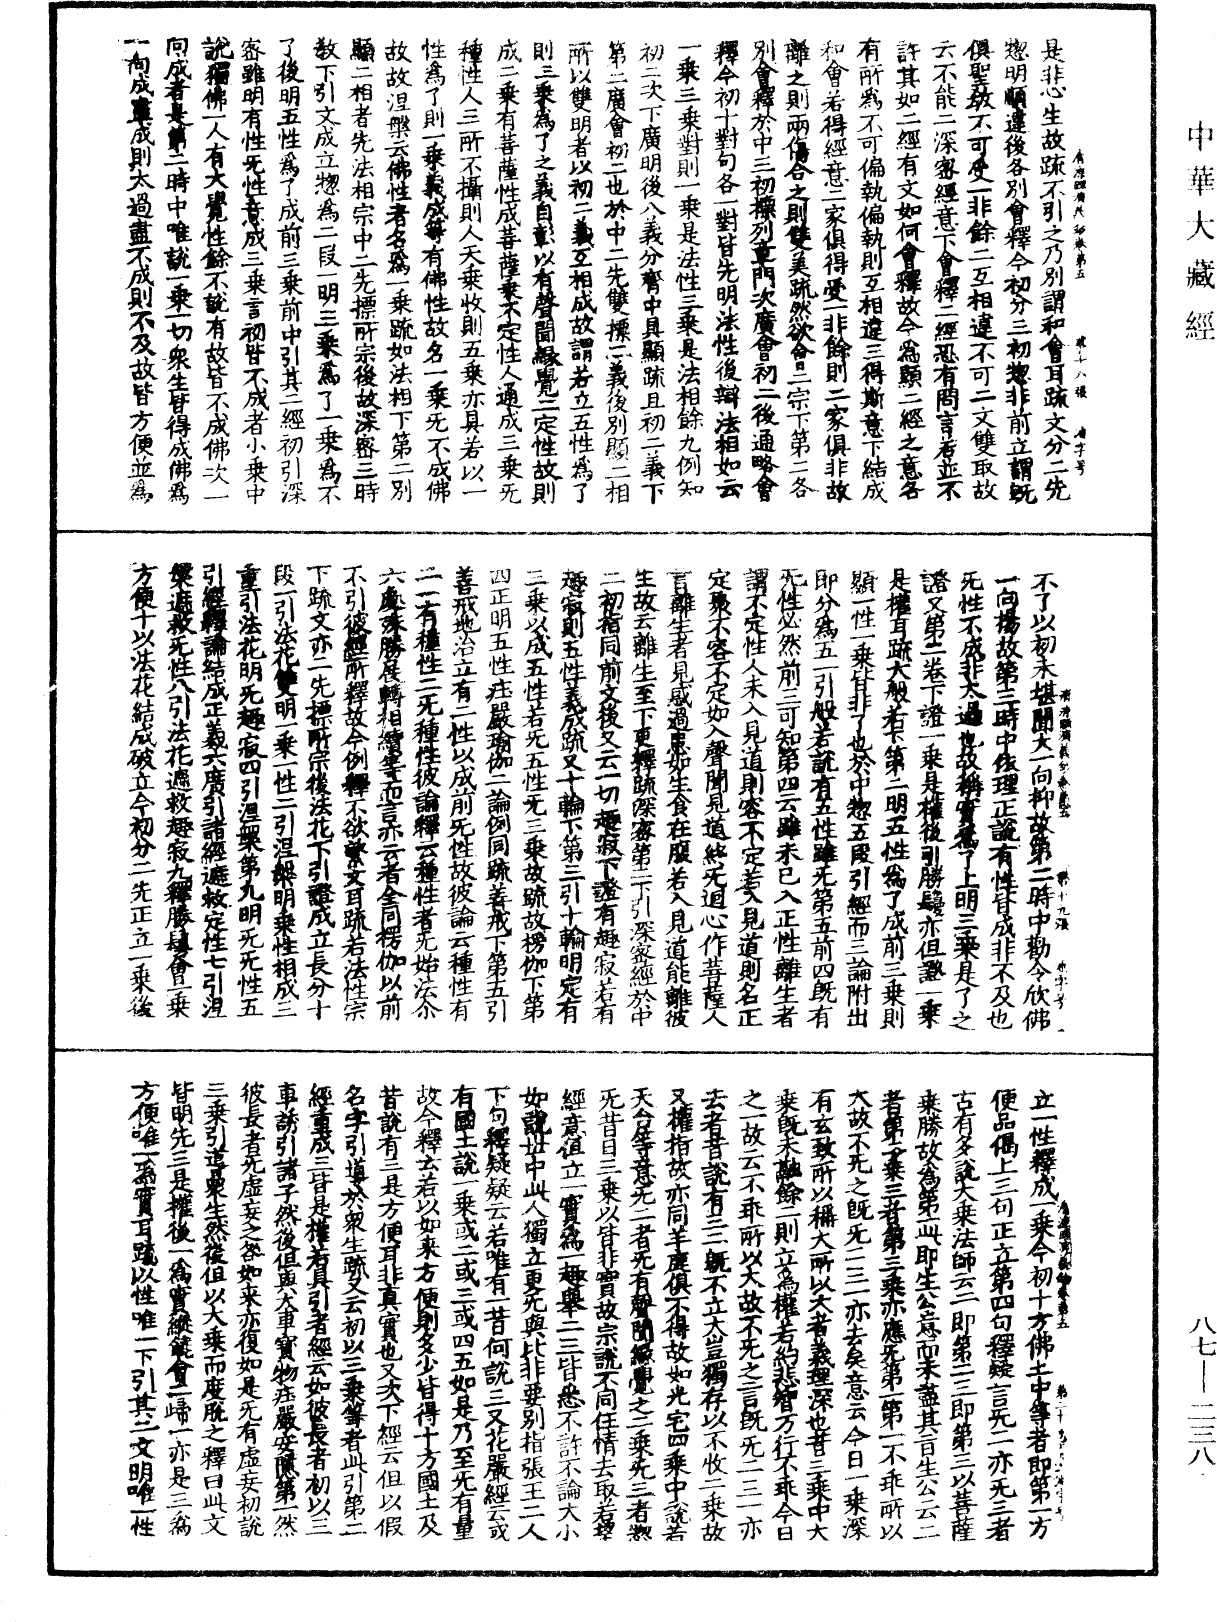 中華大藏經
是非心生故疏不引之乃別謂和會耳疏文分二先
惣明順違後各別會釋今初分三初惣非前立謂旣
俱聖教不可受一非餘二互相違不可二文雙取故
云不能二深密經意下會釋二經恐有問言若並不
許其如二經有文如何會釋故今為顯二經之意各
有所為不可偏執偏執則互相違三得斯意下結成
和會若得經意二家俱得受一非餘則二家俱非故
離之則兩傷合之則雙美疏然欲會二宗下第二各
別會釋於中三初標列章門次廣會初二後通略會
釋今初十對句各一對皆先明法性後辯法相如云
一乘三乘對則一乘是法性三乘是法相餘九例知
初二次下廣明後八義分齊中具顯疏且初二義下
第二廣會初二也於中二先雙標二義後別顯二相
所以雙明者以初二義互相成故謂若立五性為了
則三乘為了之義自彰以有聲聞緣覺二定性故則
成二乘有菩薩性成菩薩乘不定性人通成三乘无
種性人三所不攝則人天乘收則五乘亦具若以一
性為了則一乘義成等有佛性故名一乘无不成佛
故故涅槃云佛性者名為一乘疏如法相下第二別
顯二相者先法相宗中二先標所宗後故深密三時
教下引文成立惣為二段一明三乘為了一乘為不
了後明五性為了成前三乘前中引其二經初引深
密雖明有性无性意成三乘言初皆不成者小乘中
說獨佛一人有大覺性餘不說有故皆不成佛次一
向成者是第二時中唯說一乘一切衆生皆得成佛為
一向成盡成則太過盡不成則不及故皆方便並為
不了以初未堪聞大一向抑故第二時中勸令欣佛
一向揚故第三時中依理正說有性皆成非不及也
无性不成非太過也故稱實為了上明三乘是了之
證又第二卷下證一乘是權後引勝鬘亦但邀一乘
是權耳疏大般若下第二明五性為了成前三乘則
顯一性一乘皆非了也於中惣五段引經而三論附出
即分為五一引般若說有五性雖无第五前四旣有
无性必然前三可知第四云雖未已入正性離生者
謂不定性人未入見道則容不定若入見道則名正
定聚不容不定如入聲聞見道終无迴心作菩薩人
言離生者見惑過患如生食在腹若入見道能離彼
生故云離生至下更釋疏深密第二下引深密經於中
二初指同前文後又云一切趣寂下證有趣寂若有
趣寂則五性義成疏又十輪下第三引十輪明定有
三乘以成五性若无五性无三乘故疏故楞伽下第
四正明五性庄嚴瑜伽二論例同疏善戒下第五引
善戒地治立有二性以成前无性故彼論云種性有
二一有種性二无種性彼論釋云種性者无始法尒
六處殊勝展轉相續等而言亦云者全同楞伽以前
不引彼經所釋故今例釋不欲繁文耳疏若法性宗
下疏文亦二先標所宗後法花下引證成立長分十
段一引法花雙明一乘一性二引涅槃明乘性相成三
重引法花明无趣寂四引涅槃第九明无无性五
引經釋論結成正義六廣引諸經遮救定性七引涅
槃遮救无性八引法花遮救趣寂九釋勝鬘會一乘
方便十以法花結成破立今初分二先正立一乘後
立一性釋成一乘今初十方佛土中等者即第一方
便品偈上三句正立第四句釋疑言无二亦无三者
古有多說大乘法師云二即第二三即第三以菩薩
乘勝故為第一此即生公意而未盡其旨生公云二
者第二乘三者第三乘亦應无第一第一不乖所以
大故不无之旣无二三一亦去矣意云今日一乘深
有玄致所以稱大所以大者義理深也昔三乘中大
乘旣未融餘二則立為權若約悲智万行不乖今日
之一故云不乖所以大故不无之言旣无二三一亦
去者昔說有三三旣不立大豈獨存以不收二乘故
又權指故亦同羊鹿俱不得故如光宅四乘中說若
天台等意无二者无有聲聞緣覺之二乘无三者惣
无昔日三乘以皆非實故宗說不同任情去取若望
經意但立一實為一趣舉二三皆悉不許不論大小
如說此中此人獨立更无與比非要別指張王二人
下句釋疑疑云若唯有一昔何說三又花嚴經云或
有國土說一乘或二或三或四五如是乃至无有量
故今釋云若以如來方便則多少皆得十方國土及
昔說有三是方便耳非真實也又次下經云但以假
名字引導於衆生疏又云初以三乘等者此引第二
經重成三皆是權若具引者經云如彼長者初以三
車誘引諸子然後但與大車寶物庄嚴安隱第一然
彼長者无虛妄之咎如來亦復如是无有虛妄初說
三乘引導衆生然後但以大乘而度脫之釋曰此文
皆明先三是權後一為實縱饒會二歸一亦是三為
方便唯一為實耳疏以性唯一下引其二文明唯一性
八七—二三八